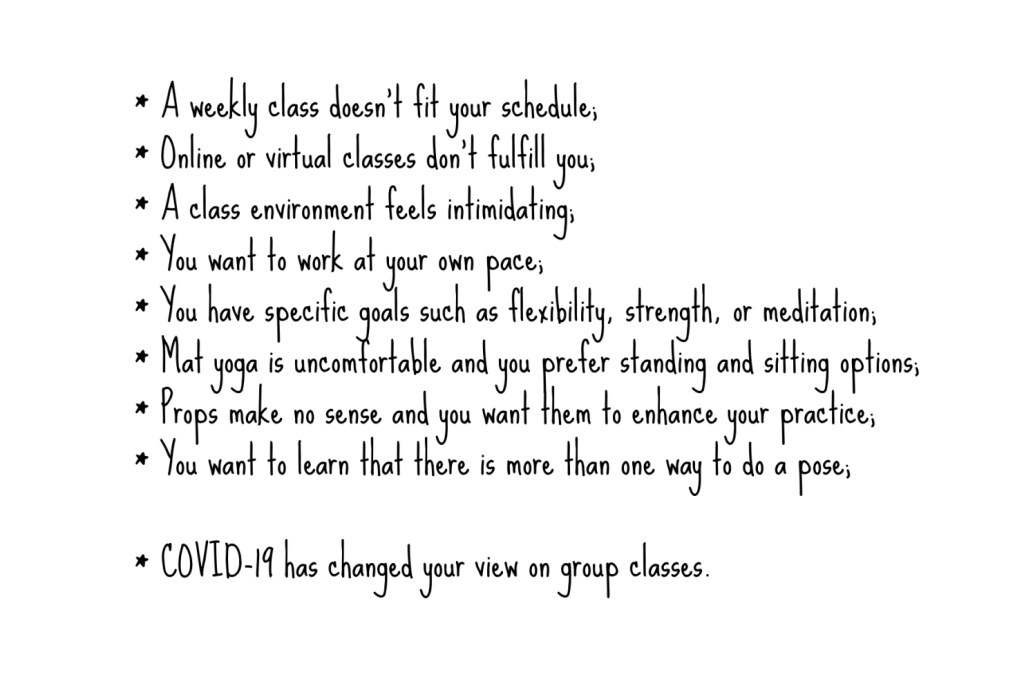 * A weekly class doesn't fit your schedule;
* Online or virtual classes don't fulfill you;
* A class environment feels intimidating;
* You want to work at your own pace;
* You have specific goals such as flexibility, strength, or meditation;
* Mat yoga is uncomfortable and you prefer standing and sitting options;
* Props make no sense and you want them to enhance your practice;
* You want to learn that there is more than one way to do a pose;
* COVID-19 has changed your view on group classes.